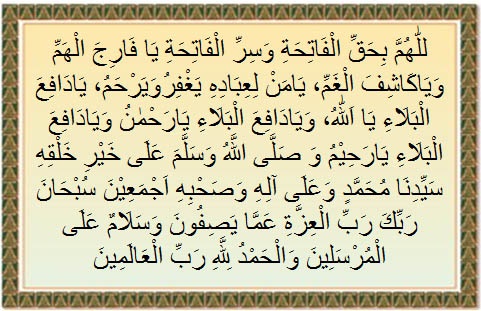 للّٰهُمَّ بِحَقِّ الْفَاتِحَةِ وَسِرِّ الْفَاتِحَةِ يَا فَارِجَ الْهَمِّ
وَيَاكَاشِفَ الْغَمِّ، يَامَنْ لِعِبَادِهِ يَغْفِرُوَيَرْحَمُ، يَادَافِعَ
الْبَلَاءِ يَا اَللّٰهُ، وَيَادَافِعَ الْبَلَاءِ يَارَحْمٰنُ وَيَادَافِعَ
الْبَلَاءِ يَارَحِيْمُ وَ صَلَّى اللَّهُ وَسَلَّمَ عَلَى خَيْرِ خَلْقِهِ
سَيِّدِنَا مُحَمَّدٍ وَعَلَى آلِهِ وَصَحْبِهِ اَجْمَعِيْنَ سُبْحَانَ
رَبِّكَ رَبِّ الْعِزَّةِ عَمَّا يَصِفُونَ وَسَلَامٌ عَلَى
الْمُرْسَلِينَ وَالْحَمْدُ لِلَّهِ رَبِّ الْعَالَمِينَ